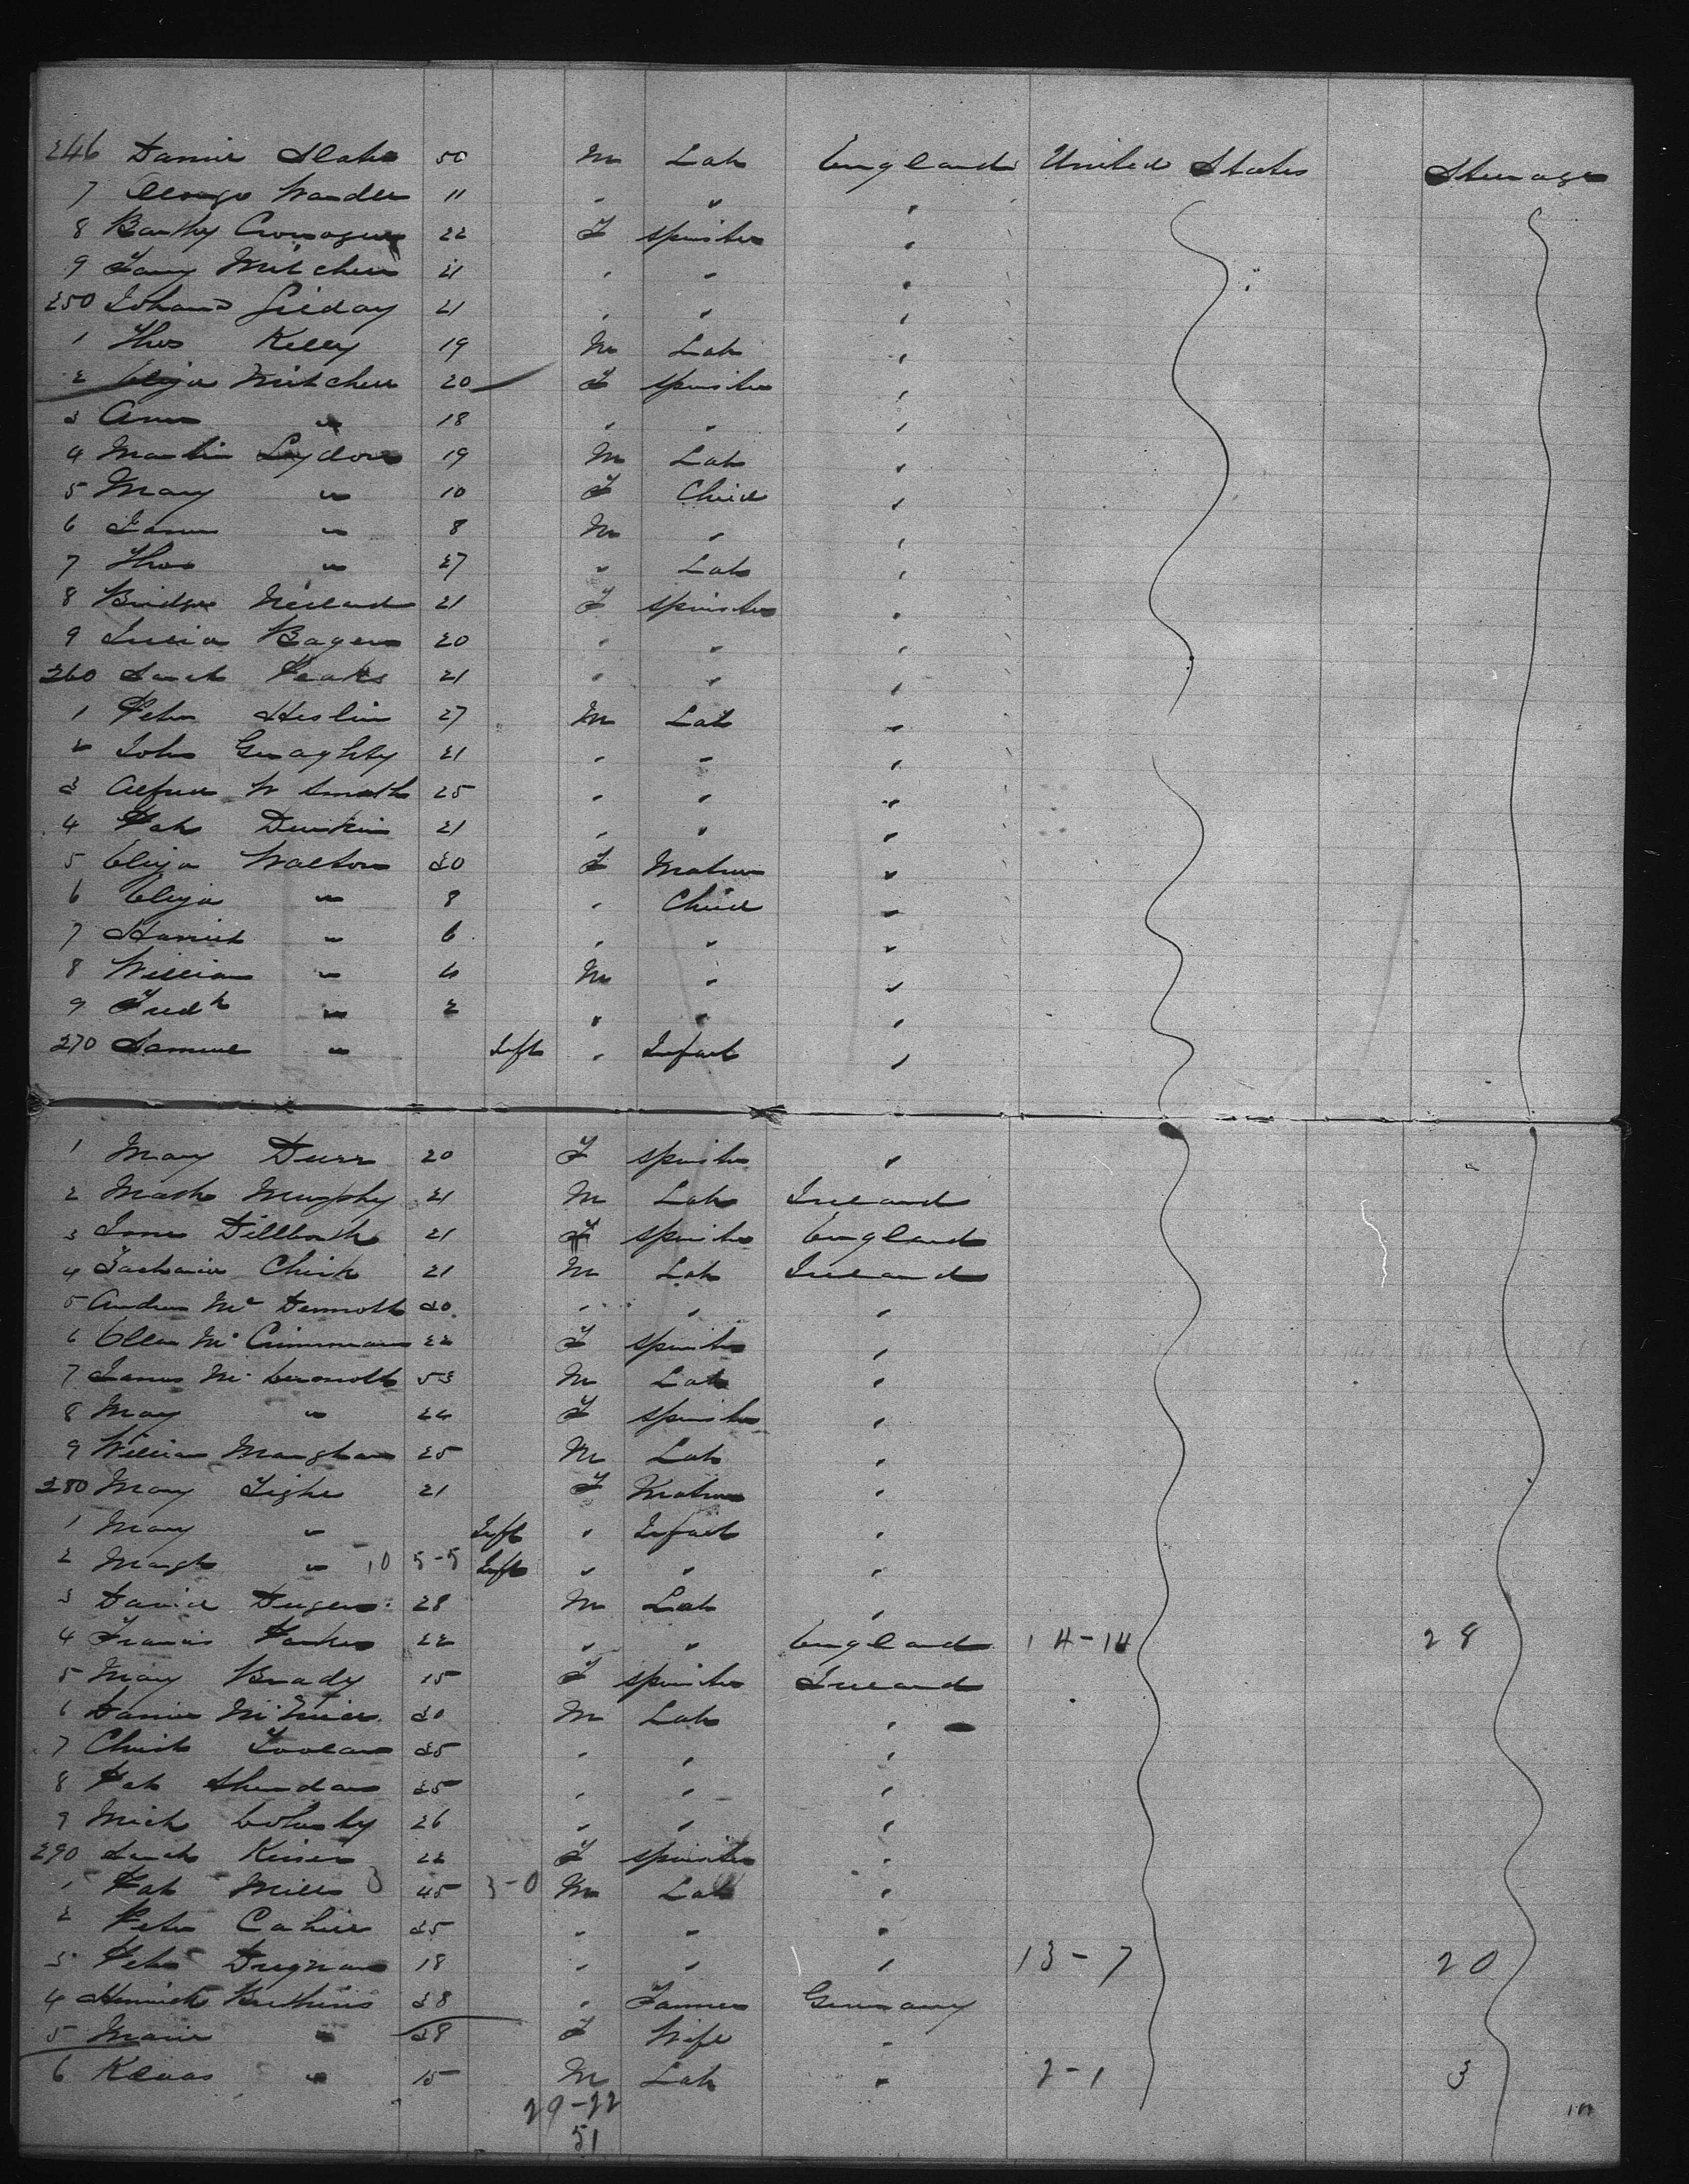 246 Daniel Slater 50 M Lab England United States Steerage
7 George Wander 11 " " "
8 22 F Spinster "
9 Fany Mitchell 21 " " "
250 21 " " "
1 Thos Kelly 19 M Lab "
2 Eliza Mitchell 20 F Spinster "
3 Ann " 18 " " "
4 Martin Lydon 19 M Lab "
5 Mary " 10 F Child "
6 James " 8 M " "
7 Thos " 27 " Lab "
8 Bridget Neiland 21 F Spinster "
9 Julia 20 " " "
260 Sarah Peaks 21 " " "
1 Peter Heslin 27 M Lab "
2 John Geraghty 21 " " "
3 Alfred W Smith 25 " " "
4 Pat Durkin 21 " " "
5 Eliza Walton 30 F Matron "
6 Eliza " 8 " Child "
7 Harriet " 6 " " "
8 William " 4 M " "
9 Fredk " 2 " " "
270 Samuel " Inft " Infant "
1 Mary Durr 20 F Spinster "
2 Murphy 21 M Lab Ireland
3 Jane 21 F Spinster England
4 21 M Lab Ireland
5 Andrew Mc Dermott 30 " " "
6 Ellen Mc Crimman 22 F Spinster "
7 James Mc Dermott 53 M Lab "
8 Mary " 24 F Spinster "
9 William Manghan 25 M Lab "
280 Mary Tighe 21 F Matron "
1 Mary " Inft " Infant "
2 Margt " 10 5-5 Inft " " "
3 Daniel Dugen 28 M Lab "
4 Francis Parker 22 " " England 14-14 28
5 Mary Brady 15 F Spinster Ireland
6 Daniel 30 M Lab "
7 Christ Toolan 35 " " "
8 Pat Sheridan 25 " " "
9 Mich 26 " " "
290 Sarah 22 F Spinster "
1 Pat Mills 3 45 3-0 M Lab "
2 Peter Cahill 35 " " "
3 Peter Dugnan 18 " " " 13-7 20
4 Heinrich 38 " Farmer Germany
5 Marie " 38 F Wife "
6 Klaas " 15 M Lab " 2-1 3
29-22
51